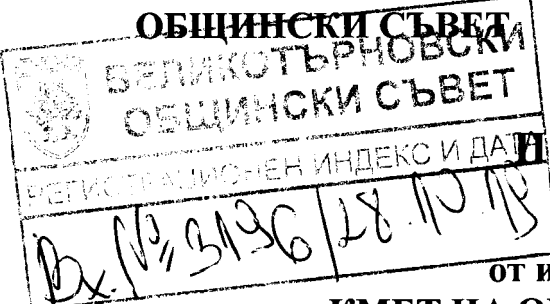 ОБЩИНСКИ СЪВЕТ
ВЕЛИКОТЪРНОВСКИ
ОБЩИНСКИ СЪВЕТ
РЕГИСТРАЦИОНЕН ИНДЕКС И ДАТА
Вх. № 3196
от
КМЕТ НА